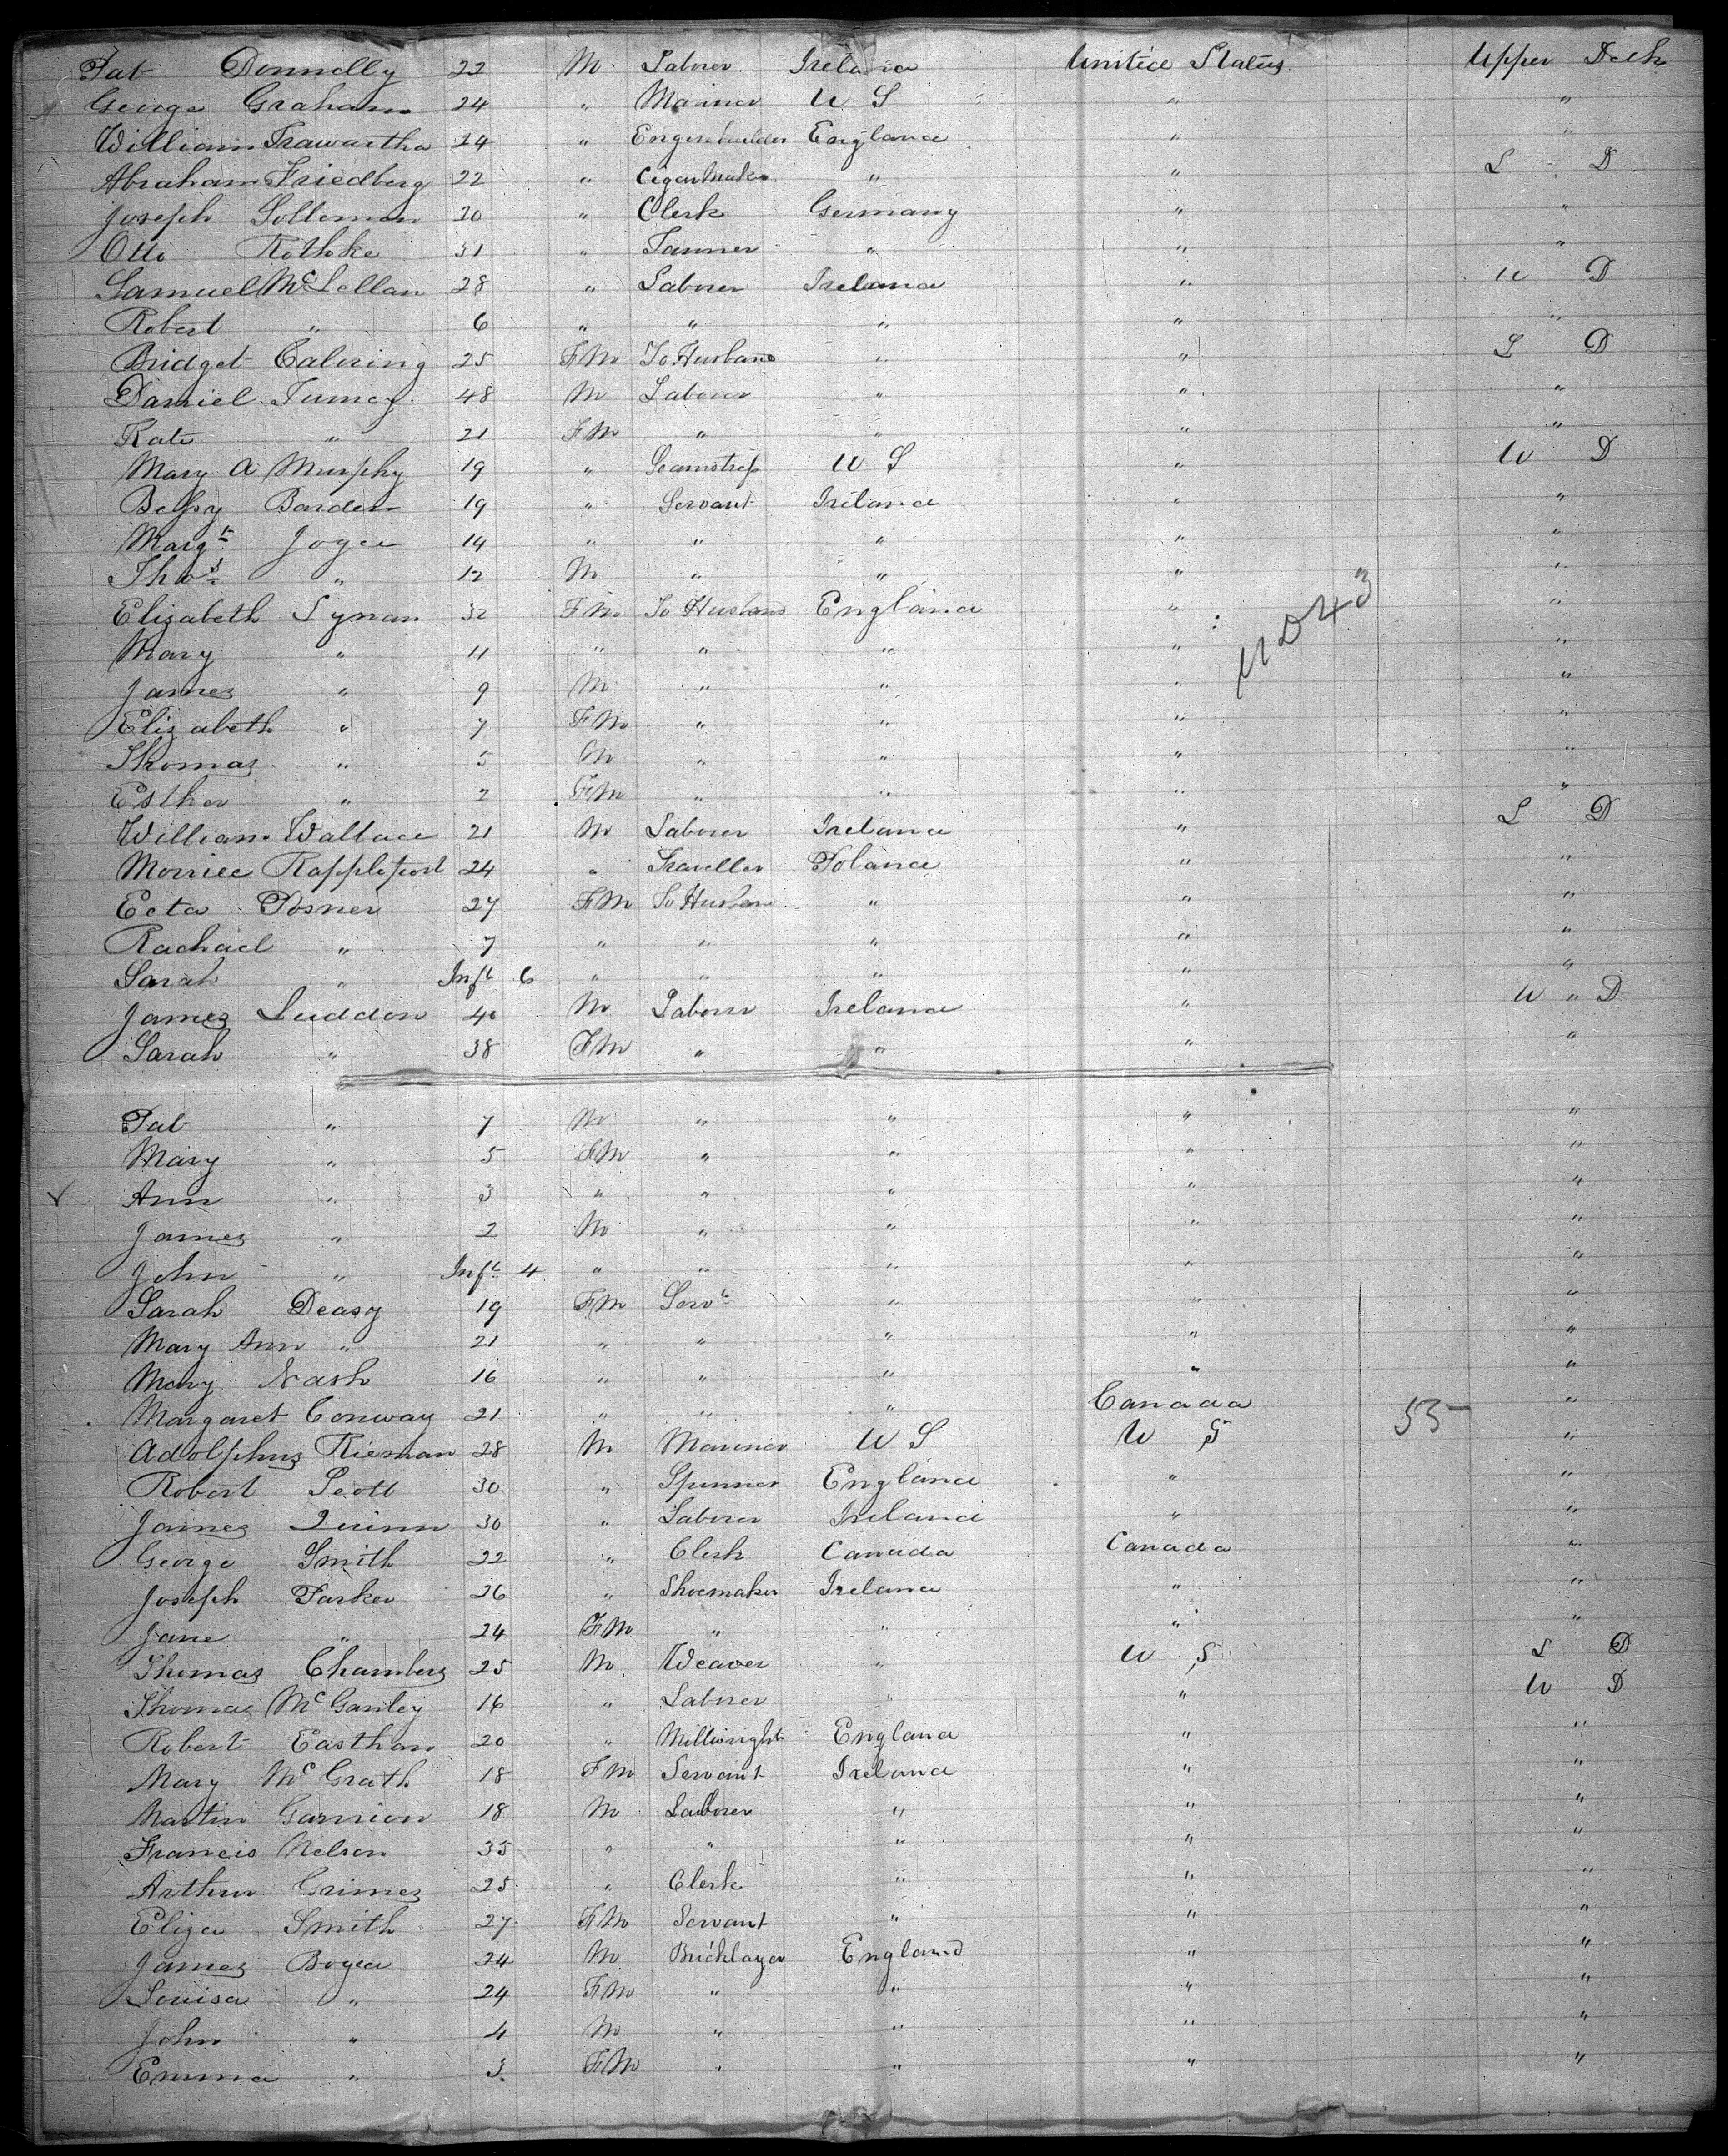 Pat Donnelly 22 M Laborer Ireland United States Upper Deck
George Graham 24 " Mariner U S " "
William Trawartha 24 " England " "
Abraham Friedberg 22 " Cigar Maker " " L D
Joseph Solloman 30 " Clerk Germany " "
Otto Rothke 31 " Tanner " " "
Samuel McLellan 28 " Laborer Ireland " U D
Robert " 6 " " " " "
Bridget 25 FM To Husband " " L D
Daniel 48 M Laborer " " "
Kate " 21 FM " " " "
Mary A Murphy 19 " Seamstress U S " U D
Bessy Barden 19 " Servant Ireland " "
Margt Joyce 14 " " " " "
Thos " 12 M " " " "
Elizabeth Lynan 32 FM To Husband England " "
Mary " 11 " " " " "
James " 9 M " " " "
Elizabeth " 7 FM " " " "
Thomas " 5 M " " " "
Esther " 2 FM " " " "
William Wallace 21 M Laborer Ireland " L D
Morriee Rappleport 24 " Traveller Poland " "
Ecta Posner 27 FM To Husband " " "
Rachael " 7 " " " " "
Sarah " Inft 6 " " " " "
James Luddon 40 M Laborer Ireland " U " D
Sarah " 38 FM " " " "
Pat " 7 M " " " "
Mary " 5 FM " " " "
Ann " 3 " " " " "
James " 2 M " " " "
John " Inft 4 " " " " "
Sarah Deasy 19 FM Servt " " "
Mary Ann " 21 " " " " "
Mary Nash 16 " " " " "
Margaret Conway 21 " " " Canada "
Adolphus Rieman 28 M Mariner U S U S 55 "
Robert Scott 30 " Spinner England " "
James Quinn 30 " Laborer Ireland " "
George Smith 22 " Clerk Canada Canada "
Joseph Parker 26 " Shoemaker Ireland " "
Jane " 24 FM " " " "
Thomas Chambers 25 M Weaver " U S L D
Thomas McGanley 16 " Laborer " " U D
Robert Eastham 20 " Millwright England " "
Mary McGrath 18 FM Servant Ireland " "
Martin Gannion 18 M Laborer " " "
Francis Nelson 35 " " " " "
Arthur Grimes 25 " Clerk " " "
Eliza Smith 27 FM Servant " " "
James Boyce 24 M Bricklayer England " "
Louisa " 24 FM " " " "
John " 4 M " " " "
Emma " 3 FM " " " "